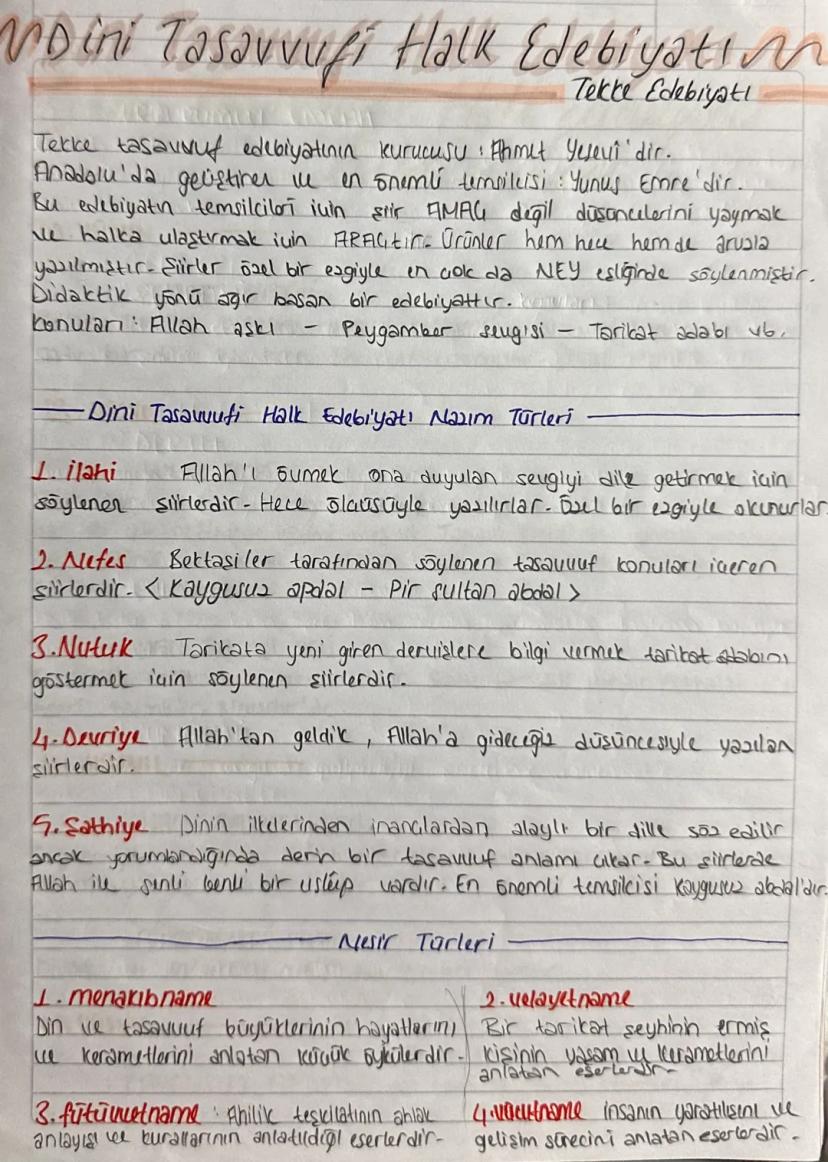 Dini Tasavvufi Halk Edebiyatı
Tekke Edebiyatı
Tekke tasavvuf edebiyatının kurucusu : Ahmet Yesevi'dir.
Anadolu'da geliştiren ve en önemli temsilcisi : Yunus Emre'dir.
Bu edebiyatın temsilcileri için şiir AMAÇ değil düşüncelerini yaymak
ve halka ulaştırmak için ARAÇtır. Ürünler hem hece hemde aruzla
yazılmıştır. Şiirler özel bir ezgiyle en çok da NEY eşliğinde söylenmiştir.
Didaktik yönü ağır basan bir edebiyattır.
Konuları : Allah aşkı - Peygamber sevgisi - Tarikat adabı vb.
Dini Tasavvufi Halk Edebiyatı Nazım Türleri
1. ilahi Allah'ı övmek ona duyulan sevgiyi dile getirmek için
söylenen şiirlerdir. Hece ölçüsüyle yazılırlar. Özel bir ezgiyle okunurlar
2. Nefes Bektaşiler tarafından söylenen tasavvuf konuları içeren
şiirlerdir. < Kaygusuz apdal - Pir sultan abdal >
3. Nutuk Tarikata yeni giren dervişlere bilgi vermek tarikat adabını
göstermek için söylenen şiirlerdir.
4. Devriye Allah'tan geldik, Allah'a gideceğiz düşüncesiyle yazılan
şiirlerdir.
5. Şathiye Dinin ilkelerinden inançlardan alaylı bir dille söz edilir
ancak yorumlandığında derin bir tasavvuf anlamı çıkar. Bu şiirlerde
Allah ile senli benli bir uslüp vardır. En önemli temsilcisi Kaygusuz abdal'dır.
Nesir Türleri
1. menakıbname
Din ve tasavvuf büyüklerinin hayatlarını
ve kerametlerini anlatan küçük öykülerdir.
2. velayetname
Bir tarikat şeyhinin ermiş
kişinin yaşam ve kerametlerini
anlatan eserlerdir.
3. fütüvvetname : Ahilik teşkilatının ahlak
anlayışı ve kurallarının anlatıldığı eserlerdir.
4. vücutname insanın yaratılışını ve
gelişim sürecini anlatan eserlerdir.